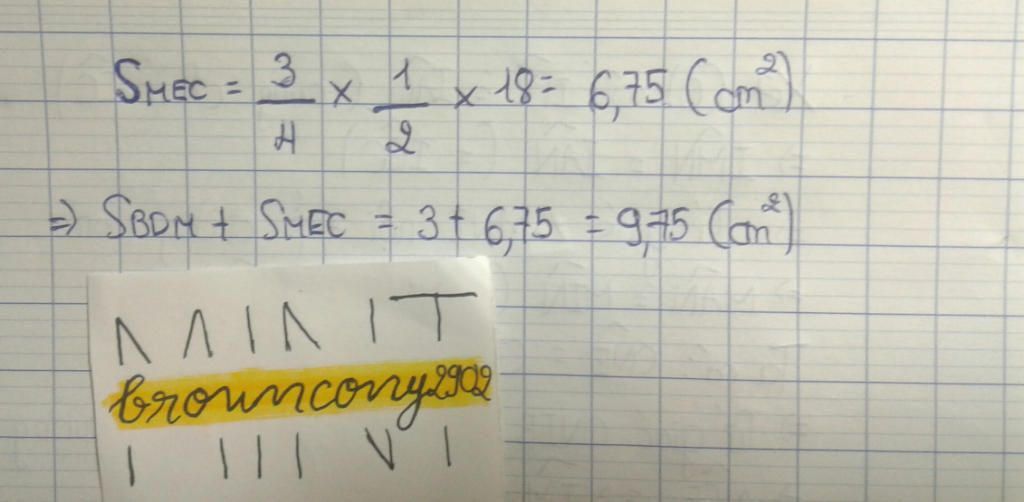 SMEC = 3/4 × 1/2 × 18 = 6,75 (cm²)
⇒ SBDM + SMEC = 3 + 6,75 = 9,75 (cm²)
browncony2902